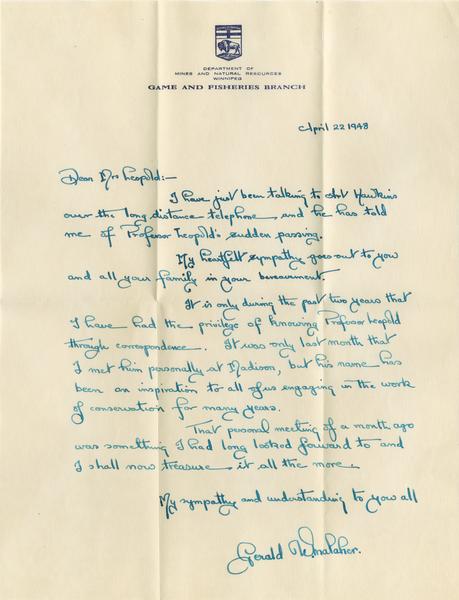 DEPARTMENT OF
MINES AND NATURAL RESOURCES
WINNIPEG
GAME AND FISHERIES BRANCH
April 22 1948
Dear Mrs Leopold:—
I have just been talking to Art Hawkins
over the long distance telephone and he has told
me of Professor Leopold's sudden passing.
My heartfelt sympathy goes out to you
and all your family in your bereavment
It is only during the past two years that
I have had the privilege of knowing Professor Leopold
through correspondence. It was only last month that
I met him personally at Madison, but his name has
been an inspiration to all of us engaging in the work
of conservation for many years.
That personal meeting of a month ago
was something I had long looked forward to and
I shall now treasure it all the more.
My sympathy and understanding to you all
Gerald W. Malaher.